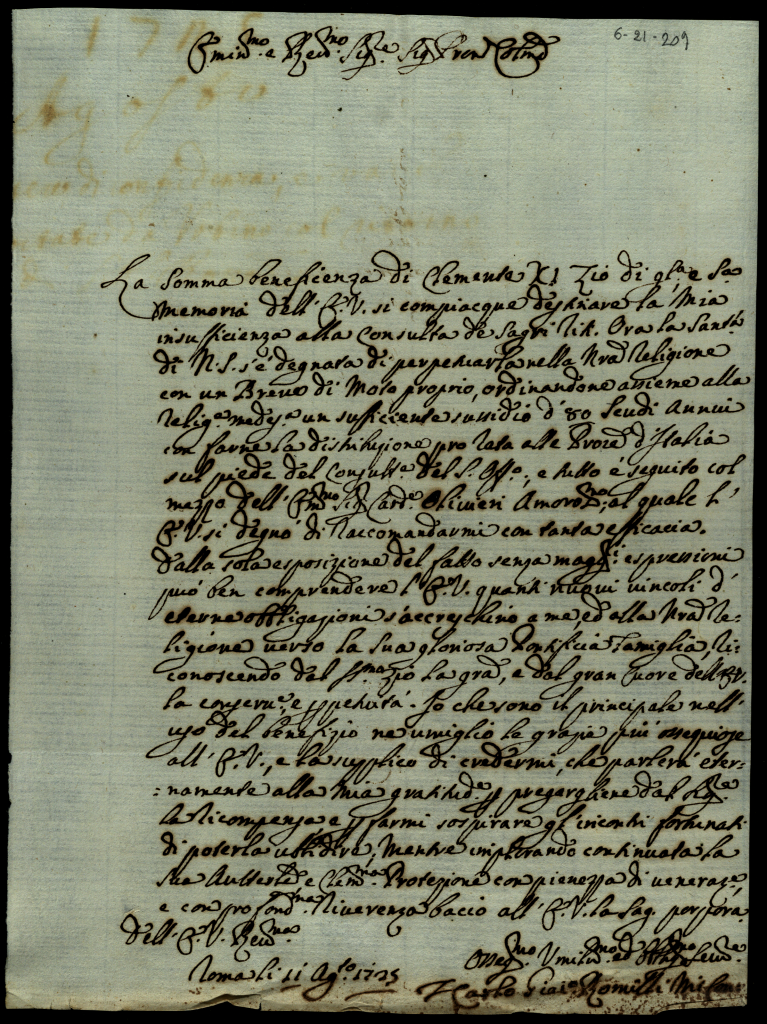 6-21-209
Emin.mo e Rev.mo Sig.re Sig. Pron. Colmo
La somma beneficenza di Clemente XI Zio di gl.a e Sa.
Memoria dell' E.V. si compiacque destinare la Mia
insufficienza alla Consulta de Sagri Rit. Ora la Sant.à
di N.S. s'è degnata di perpetuarla nella Nra Religione
con un Breve di Moto proprio, ordinandone assieme alla
Relig.e medes.a un sufficiente sussidio d' 80 Scudi Annui
con farne la distribuzione pro rata alle Prov.e d'Italia
sul piede del Consult.e del S. Off.o, e tutto é seguito col
mezzo dell' Em.mo Sig. Card.e Olivieri Amorev.mo, al quale l'
E.V. si degnó di Raccomandarmi con tanta efficacia.
Dalla sola esposizione del fatto senza magg.i espressioni
puó ben comprendere l' E.V. quanti nuovi vincoli d'
eterne obbligazioni s'accreschino a me, ed alla Nra Re-
ligione verso la sua gloriosa Pontificia Famiglia, ri-
conoscendo dal S.mo Zio la gra, e dal gran Cuore dell' E.V.
la conserv.e, e ppetuità. Io che sono il principale nell'
uso del benefizio ne umiglio le grazie piú ossequiose
all' E.V., e la supplico di credermi, che parleró eter-
:namente alla mia gratitud.e p pregargliene dal Sig.re
la ricompensa e p farmi sospirare gl'incontri fortunati
di poterla ubbidire, Mentre implorando continuata la
sua Autterev.e, e Clem.ma Protezione con pienezza di veneraz.e,
e con profond.ma Riverenza bacio all' E.V. la Sag. porpora.
Dell' E.V. Rev.ma
Roma li 11 Ag.to 1725
Osseq.mo Umilis.mo ed Obblig.mo Serv.re
F. Carlo Giac.o Romilli Min. Conv.